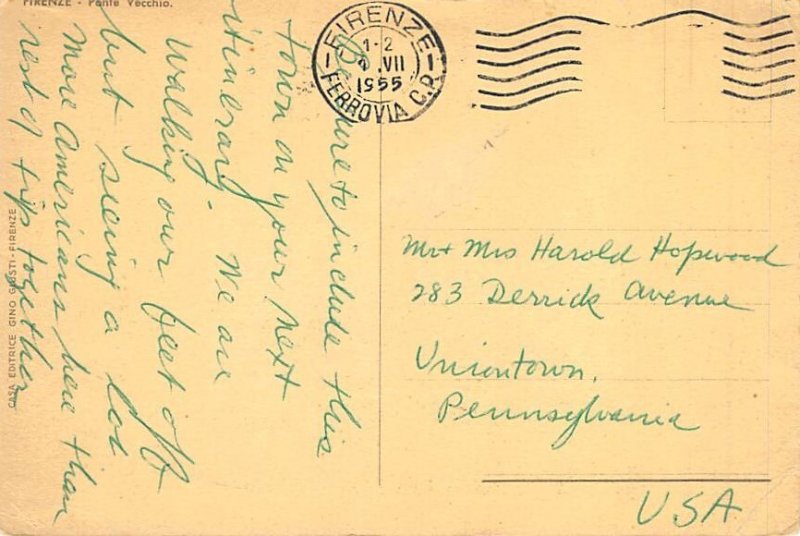 FIRENZE - Ponte Vecchio.
Be sure to include this
town on your next
itinerary. We are
walking our feet off
but seeing a lot
more Americans here than
rest of trip together
CASA EDITRICE GINO GIUSTI - FIRENZE
FIRENZE
1-2
VII
1955
FERROVIA C.P.
Mr + Mrs Harold Hopwood
283 Derrick Avenue
Uniontown,
Pennsylvania
USA